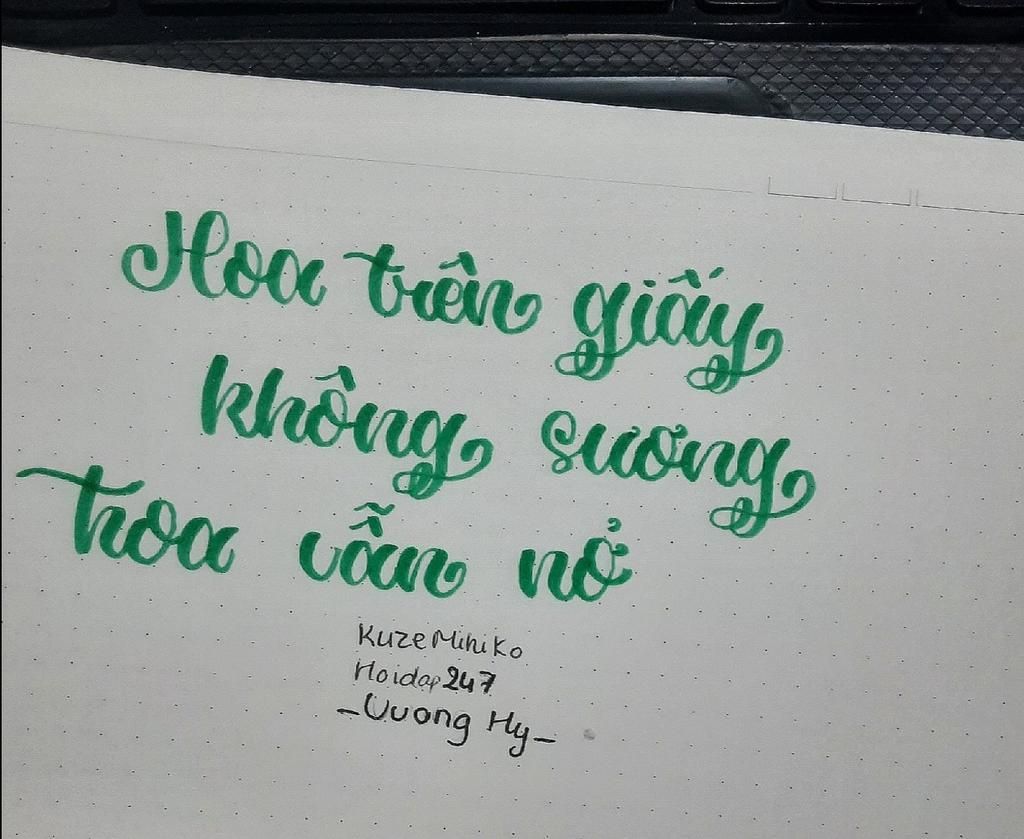 Hoa trên giấy
không sương
hoa vẫn nở
KuzeMihiKo
Hoidap247
-Vuong Hy-